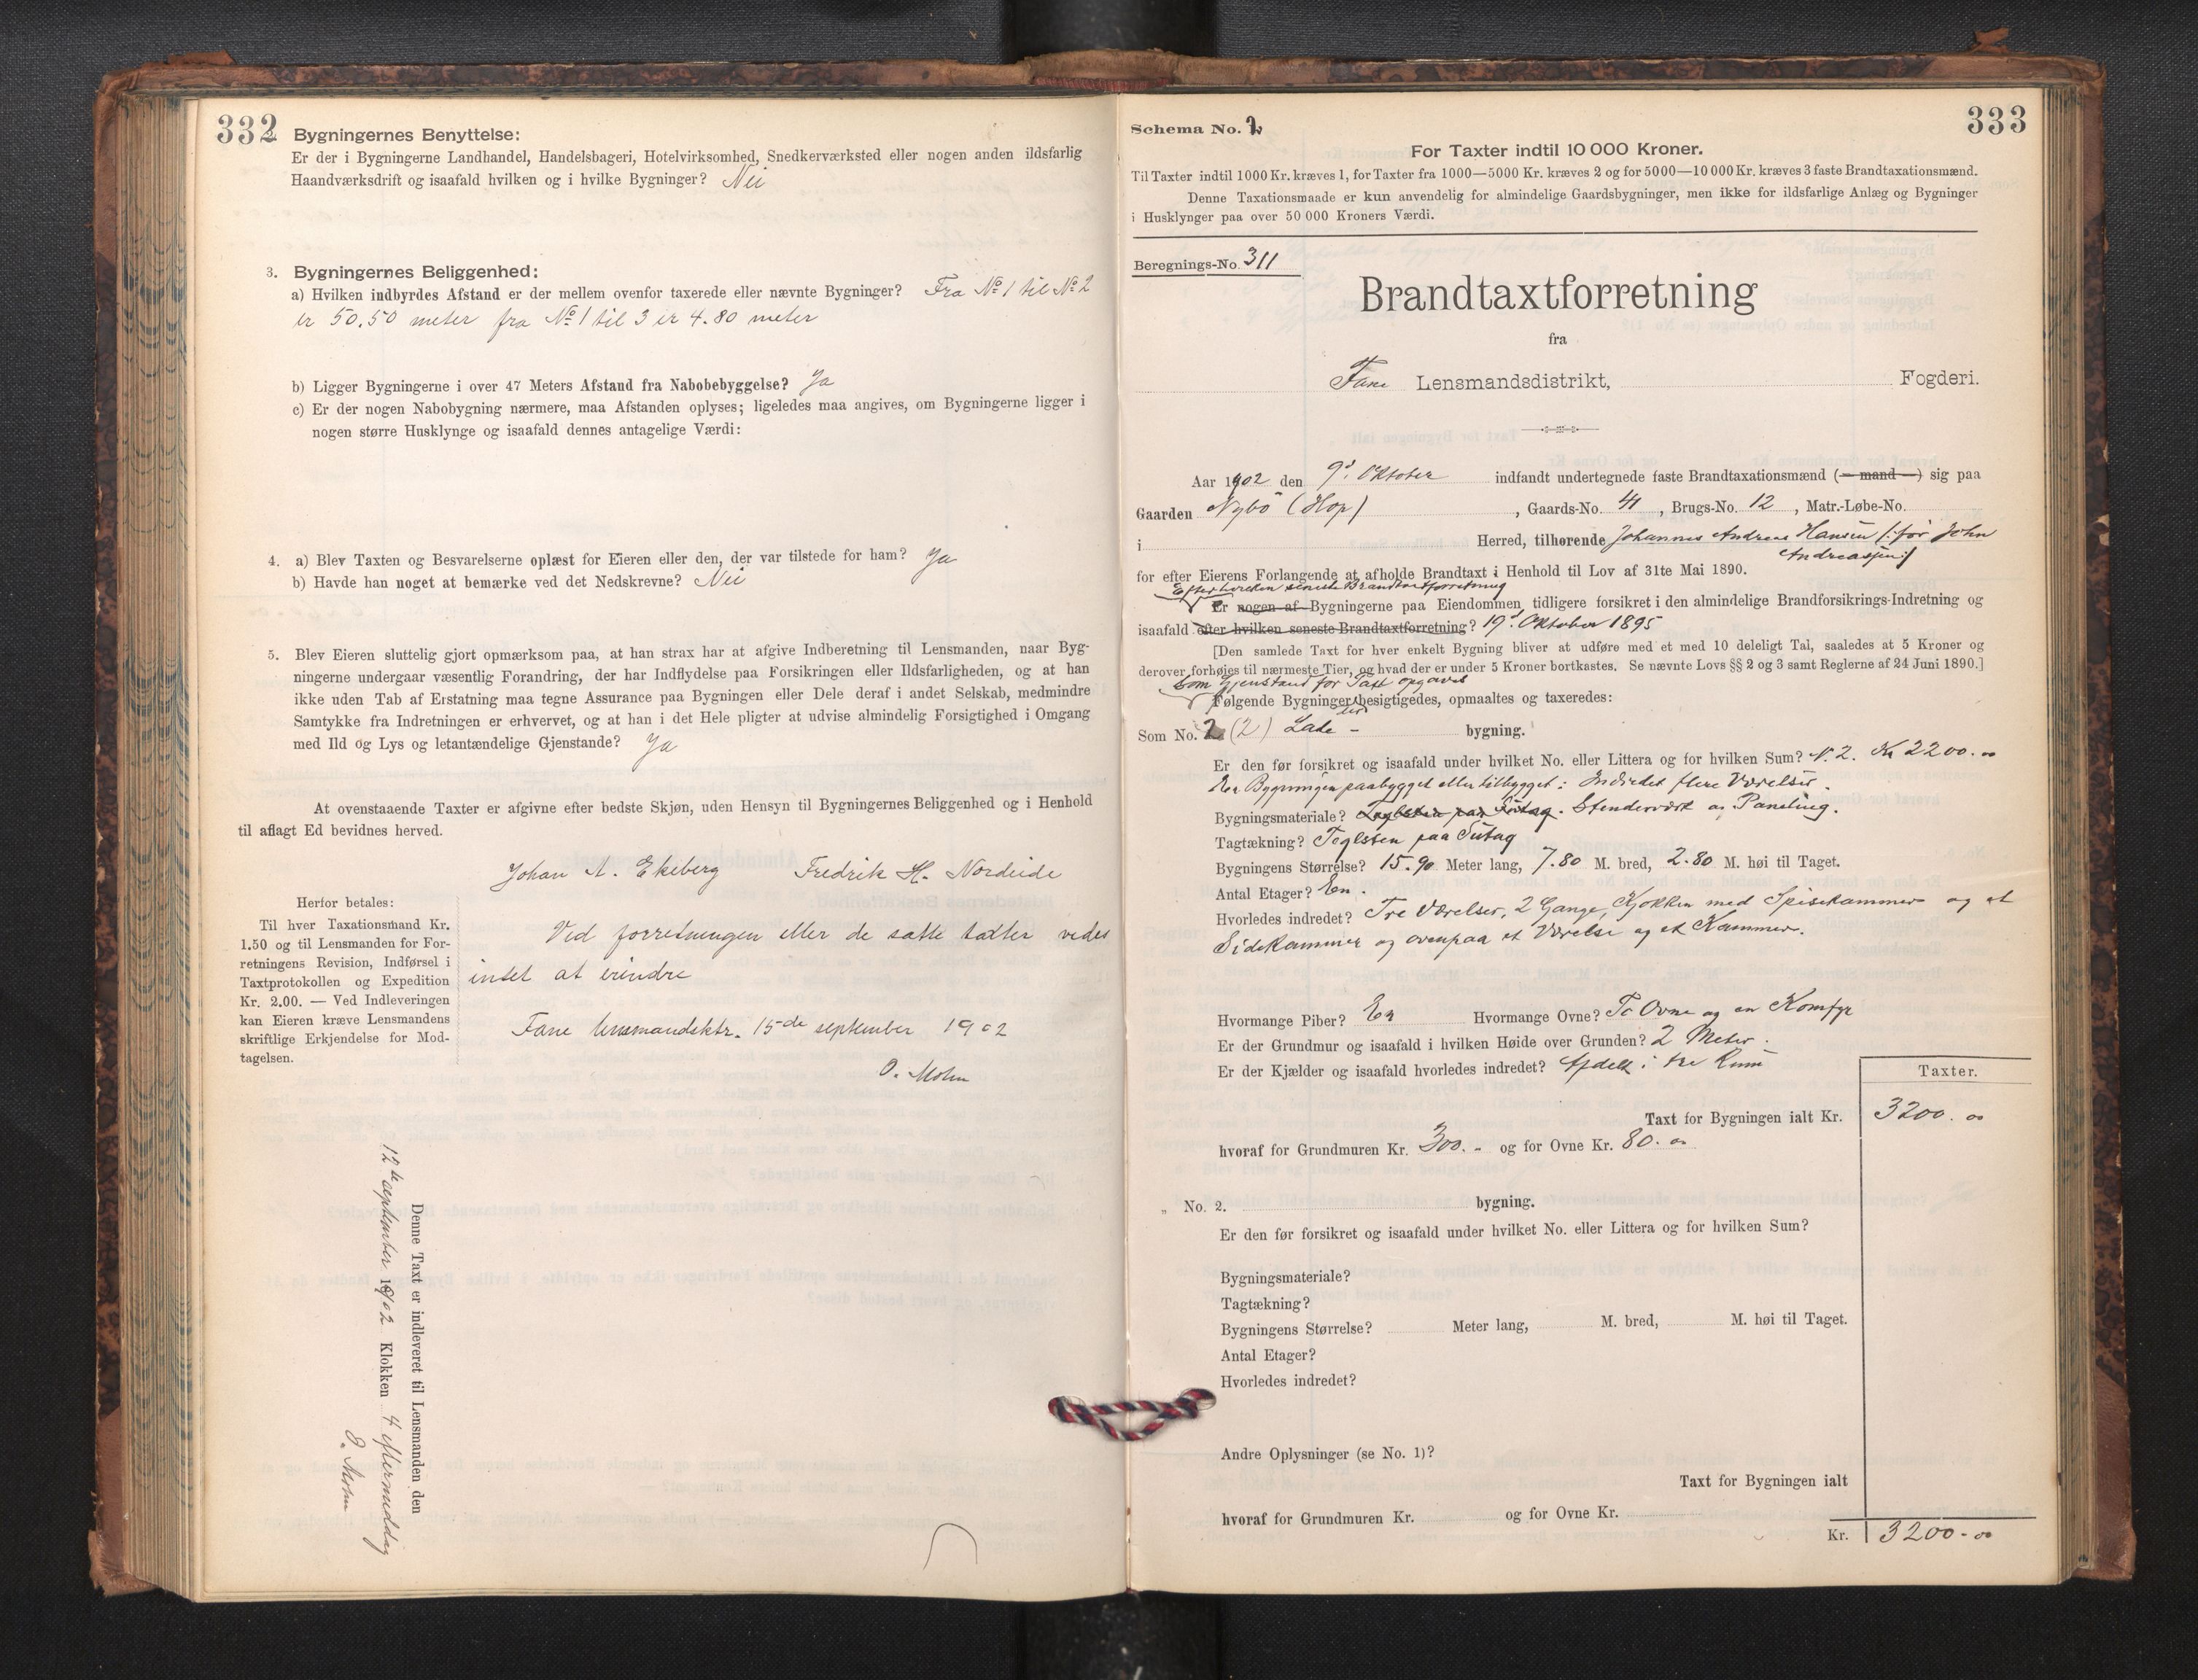 332
Bygningernes Benyttelse:
Er der i Bygningerne Landhandel, Handelsbageri, Hotelvirksomhed, Snedkerværksted eller nogen anden ildsfarlig
Haandværksdrift og isaafald hvilken og i hvilke Bygninger? Nei
3. Bygningernes Beliggenhed:
a) Hvilken indbyrdes Afstand er der mellem ovenfor taxerede eller nævnte Bygninger? Fra No 1 til No 2
er 50.50 meter fra No 1 til 3 er 4.80 meter
b) Ligger Bygningerne i over 47 Meters Afstand fra Nabobebyggelse? Ja
c) Er der nogen Nabobygning nærmere, maa Afstanden oplyses; ligeledes maa angives, om Bygningerne ligger i
nogen større Husklynge og isaafald dennes antagelige Værdi:
4. a) Blev Taxten og Besvarelserne oplæst for Eieren eller den, der var tilstede for ham? Ja
b) Havde han noget at bemærke ved det Nedskrevne? Nei
5. Blev Eieren sluttelig gjort opmærksom paa, at han strax har at afgive Indberetning til Lensmanden, naar Byg-
ningerne undergaar væsentlig Forandring, der har Indflydelse paa Forsikringen eller Ildsfarligheden, og at han
ikke uden Tab af Erstatning maa tegne Assurance paa Bygningen eller Dele deraf i andet Selskab, medmindre
Samtykke fra Indretningen er erhvervet, og at han i det Hele pligter at udvise almindelig Forsigtighed i Omgang
med Ild og Lys og letantændelige Gjenstande? Ja
At ovenstaaende Taxter er afgivne efter bedste Skjøn, uden Hensyn til Bygningernes Beliggenhed og i Henhold
til aflagt Ed bevidnes herved.
Johan A. Ekeberg Fredrik H. Nordeide
Herfor betales:
Til hver Taxationsmand Kr.
1.50 og til Lensmanden for For-
retningens Revision, Indførsel i
Taxtprotokollen og Expedition
Kr. 2.00. — Ved Indleveringen
kan Eieren kræve Lensmandens
skriftlige Erkjendelse for Mod-
tagelsen.
Ved forretningen eller de satte taxter vedes
intet at erindre
Fane lensmandsktr. 15de september 1902
O. Mohn
Denne Taxt er indleveret til Lensmanden den
12te september 1902 Klokken 4 eftermiddag
O. Mohn
333
Schema No. 2
For Taxter indtil 10 000 Kroner.
Til Taxter indtil 1000 Kr. kræves 1, for Taxter fra 1000—5000 Kr. kræves 2 og for 5000—10 000 Kr. kræves 3 faste Brandtaxationsmænd.
Denne Taxationsmaade er kun anvendelig for almindelige Gaardsbygninger, men ikke for ildsfarlige Anlæg og Bygninger
i Husklynger paa over 50 000 Kroners Værdi.
Beregnings-No. 311
Brandtaxtforretning
fra
Fane Lensmandsdistrikt, Fogderi.
Aar 1902 den 9d. Oktober indfandt undertegnede faste Brandtaxationsmænd (— mand —) sig paa
Gaarden Nybö (Hop) , Gaards-No. 41 , Brugs-No. 12 , Matr.-Løbe-No.
i Herred, tilhørende Johannes Andreas Hansen /: for John
Andreassen :/
for efter Eierens Forlangende at afholde Brandtaxt i Henhold til Lov af 31te Mai 1890.
Efter hvilken seneste Brandtaxtforretning
Er nogen af Bygningerne paa Eiendommen tidligere forsikret i den almindelige Brandforsikrings-Indretning og
isaafald efter hvilken seneste Brandtaxtforretning? 19d. Oktober 1895
[Den samlede Taxt for hver enkelt Bygning bliver at udføre med et med 10 deleligt Tal, saaledes at 5 Kroner og
derover forhøies til nærmeste Tier, og hvad der er under 5 Kroner bortkastes. Se nævnte Lovs §§ 2 og 3 samt Reglerne af 24 Juni 1890.]
Som Gjenstand for Taxt opgaves
Følgende Bygninger besigtigedes, opmaaltes og taxeredes:
der
Som No. 2 (2) Lade - bygning.
Er den før forsikret og isaafald under hvilket No. eller Littera og for hvilken Sum? N. 2. Kr 2200.00
Er Bygningen paabygget eller tilbygget: Indredet flere Værelser.
Bygningsmateriale? Stenderværk og Paneling.
Tagtækning? Teglsten paa Sutag
Bygningens Størrelse? 15.90 Meter lang, 7.80 M. bred, 2.80 M. høi til Taget.
Antal Etager? En.
Hvorledes indredet? Tre Værelser, 2 Gange, Kjøkken med Spisekammer og et
Sidekammer og ovenpaa et Værelse og et Kammer.
Hvormange Piber? En Hvormange Ovne? To Ovne og en Komfyr
Er der Grundmur og isaafald i hvilken Høide over Grunden? 2 Meter.
Er der Kjælder og isaafald hvorledes indredet? Afdelt i tre Rum
Taxter.
Taxt for Bygningen ialt Kr. 3200.00
hvoraf for Grundmuren Kr. 300.- og for Ovne Kr. 80.00
„ No. 2. bygning.
Er den før forsikret og isaafald under hvilket No. eller Littera og for hvilken Sum?
Bygningsmateriale?
Tagtækning?
Bygningens Størrelse? Meter lang, M. bred, M. høi til Taget.
Antal Etager?
Hvorledes indredet?
Andre Oplysninger (se No. 1)?
Taxt for Bygningen ialt
hvoraf for Grundmuren Kr. og for Ovne Kr.
Kr. 3200.00